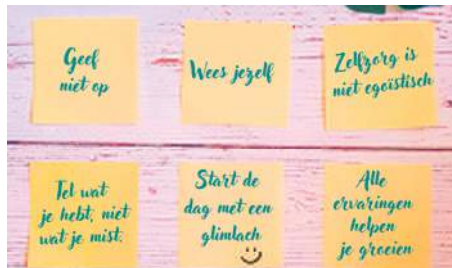 Geef
niet op
Wees jezelf
Zelfzorg is
niet egoïstisch
Tel wat
je hebt, niet
wat je mist.
Start de
dag met een
glimlach
Alle
ervaringen
helpen
je groeien